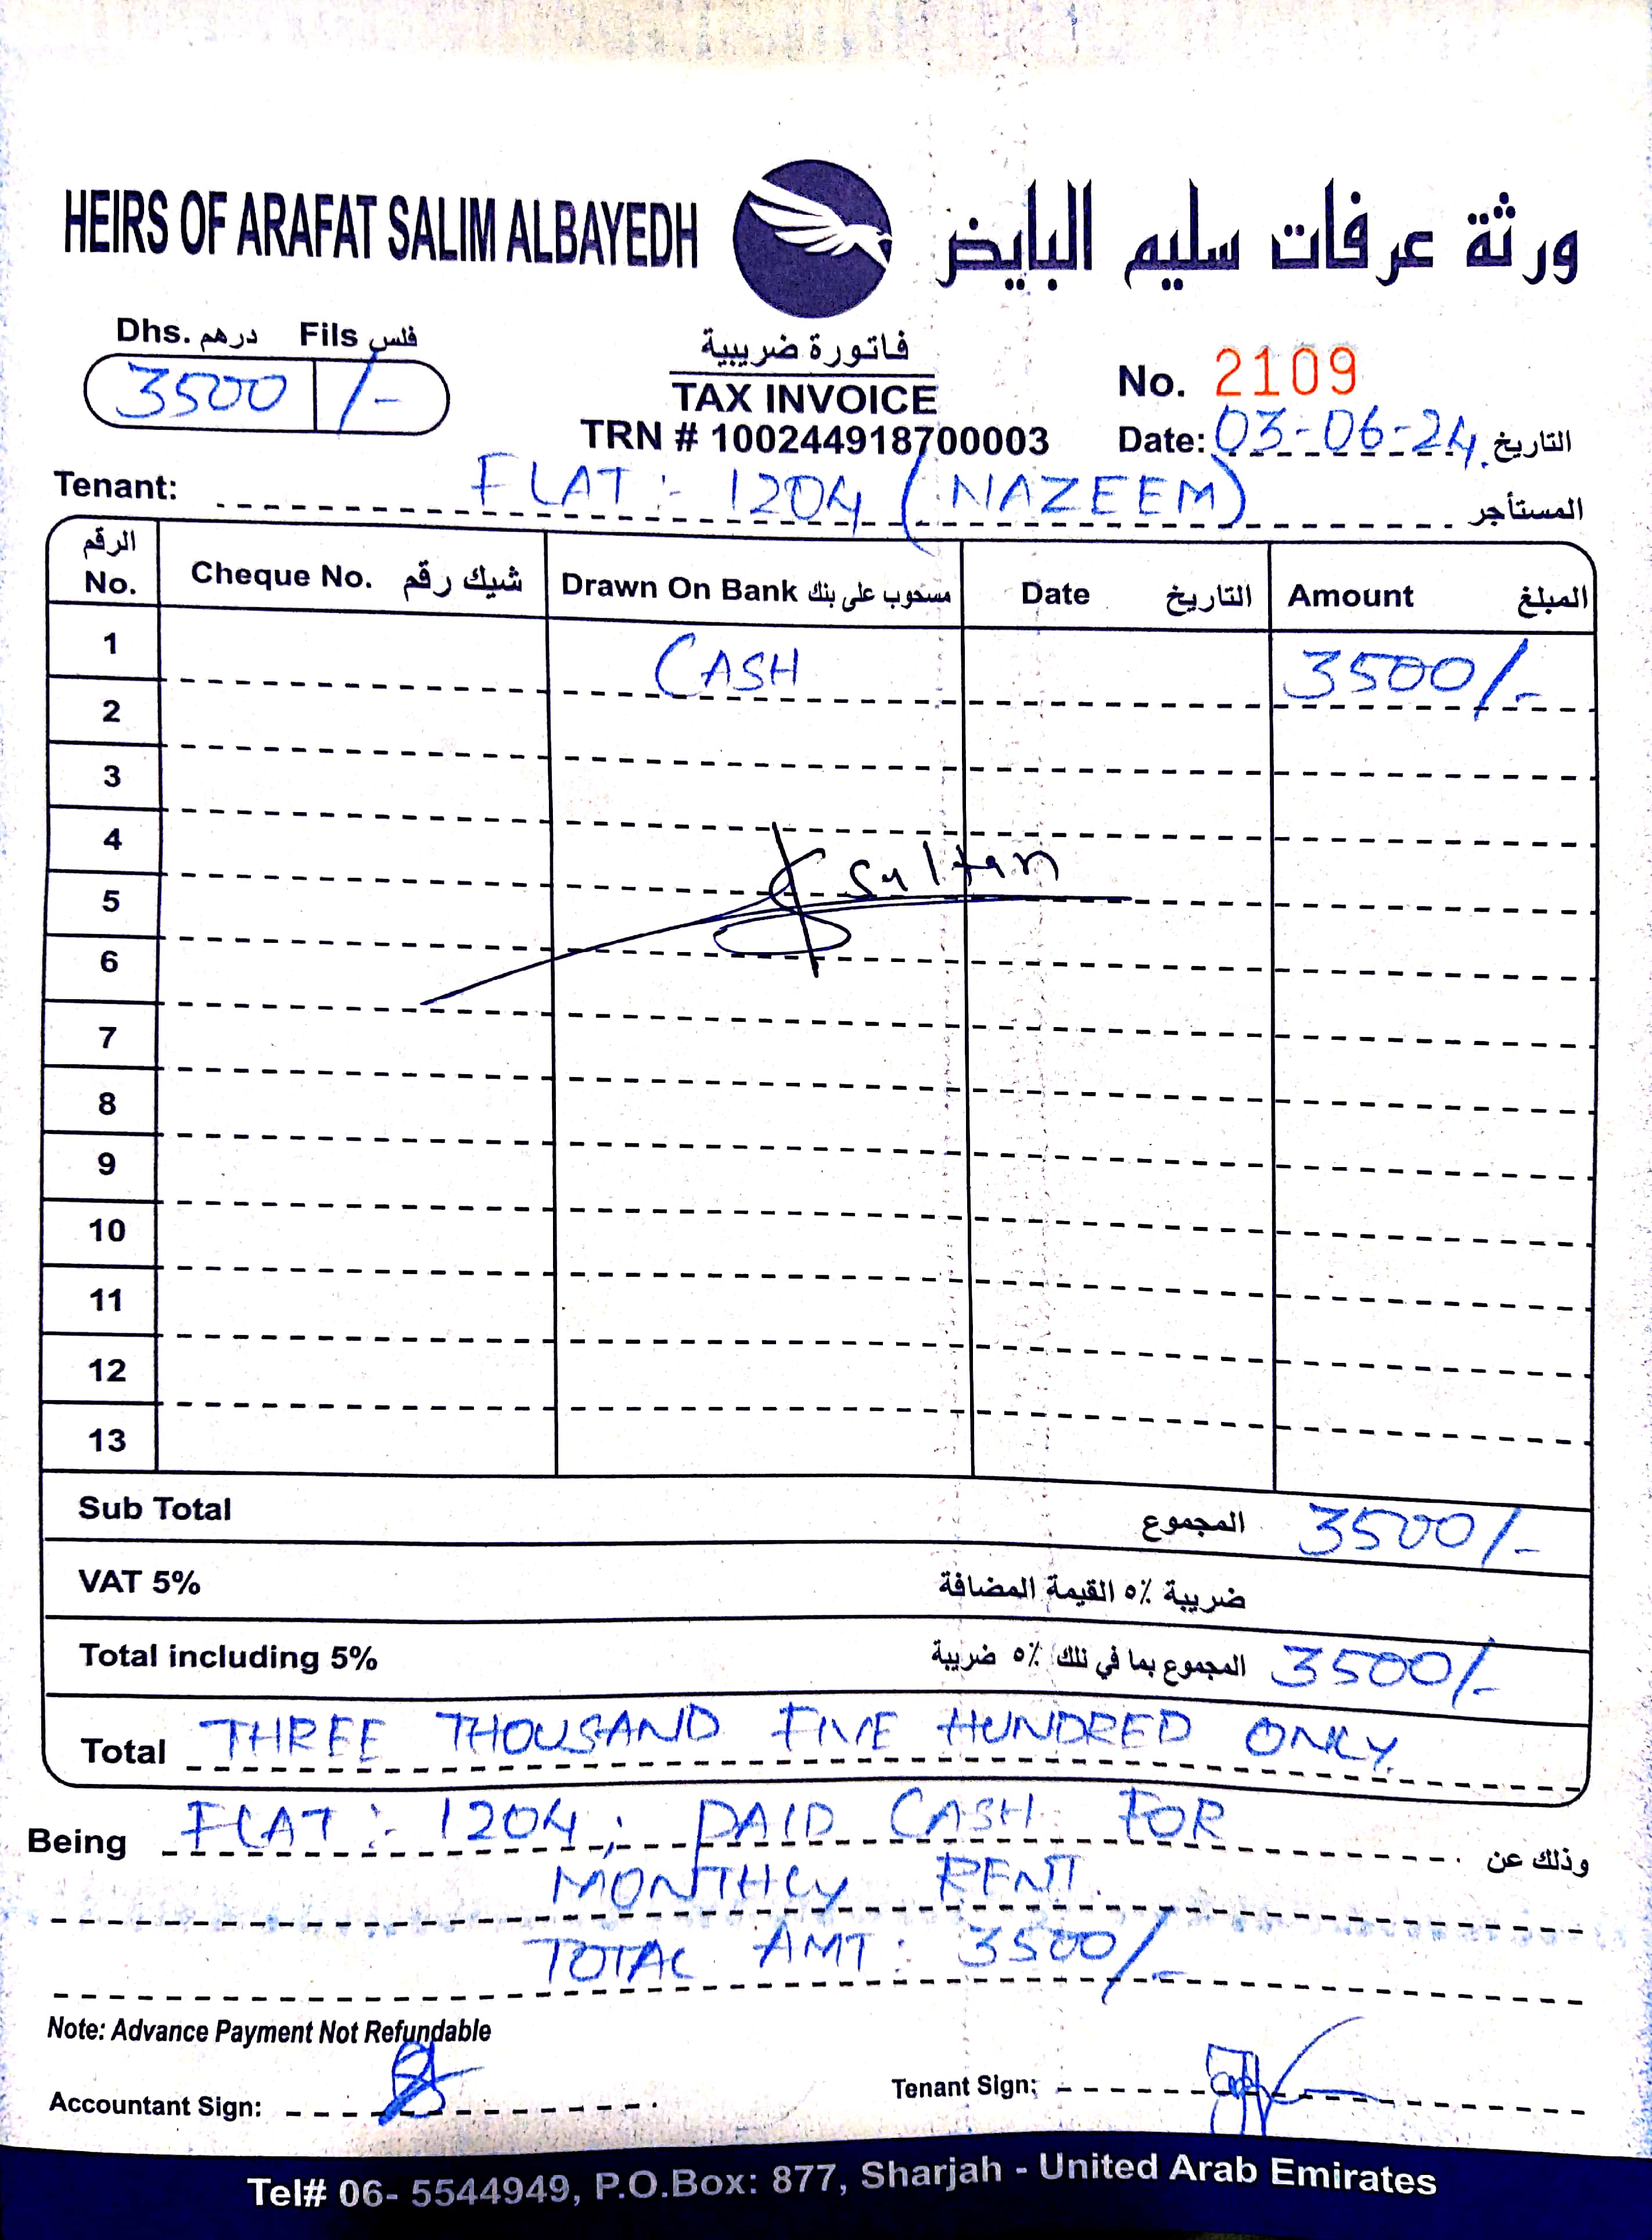 HEIRS OF ARAFAT SALIM ALBAYEDH ورثة عرفات سليم البايض
Dhs. درهم Fils فلس
3500 /-
فاتورة ضريبية
TAX INVOICE
TRN # 100244918700003
No. 2109
Date: 03-06-24 التاريخ
Tenant: FLAT:- 1204 (NAZEEM) المستأجر
الرقم No. Cheque No. شيك رقم Drawn On Bank مسحوب على بنك Date التاريخ Amount المبلغ
1 CASH 3500/-
2
3
4
Sultan
5
6
7
8
9
10
11
12
13
Sub Total المجموع 3500/-
VAT 5% ضريبة ٥٪ القيمة المضافة
Total including 5% المجموع بما في ذلك ٥٪ ضريبة 3500/-
Total THREE THOUSAND FIVE HUNDRED ONLY.
Being FLAT:- 1204, PAID CASH FOR وذلك عن
MONTHLY RENT.
TOTAL AMT: 3500/-
Note: Advance Payment Not Refundable
Accountant Sign: Tenant Sign:
Tel# 06- 5544949, P.O.Box: 877, Sharjah - United Arab Emirates